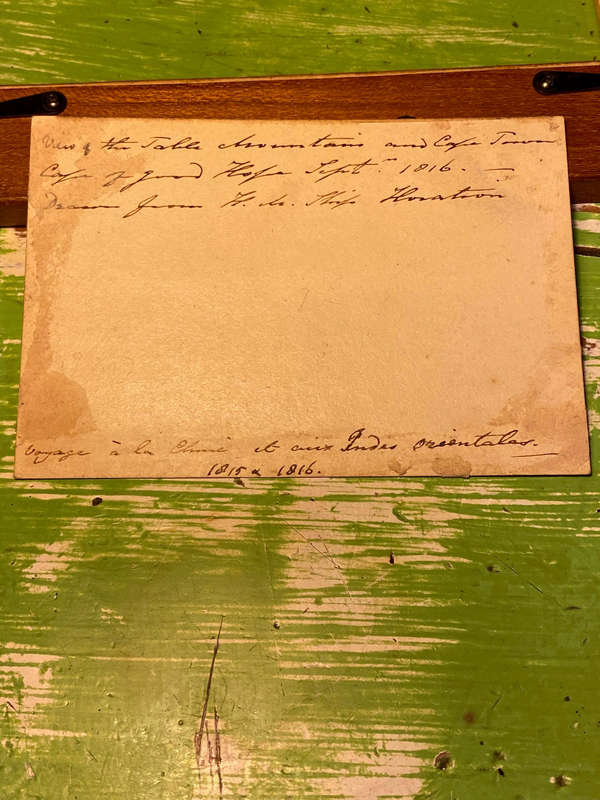 View of the Table Mountain and Cape Town
Cape of Good Hope Septr. 1816. —
Drawn from H. M. Ship Horatio
Voyage à la Chine et aux Indes Orientales.
1815 & 1816.